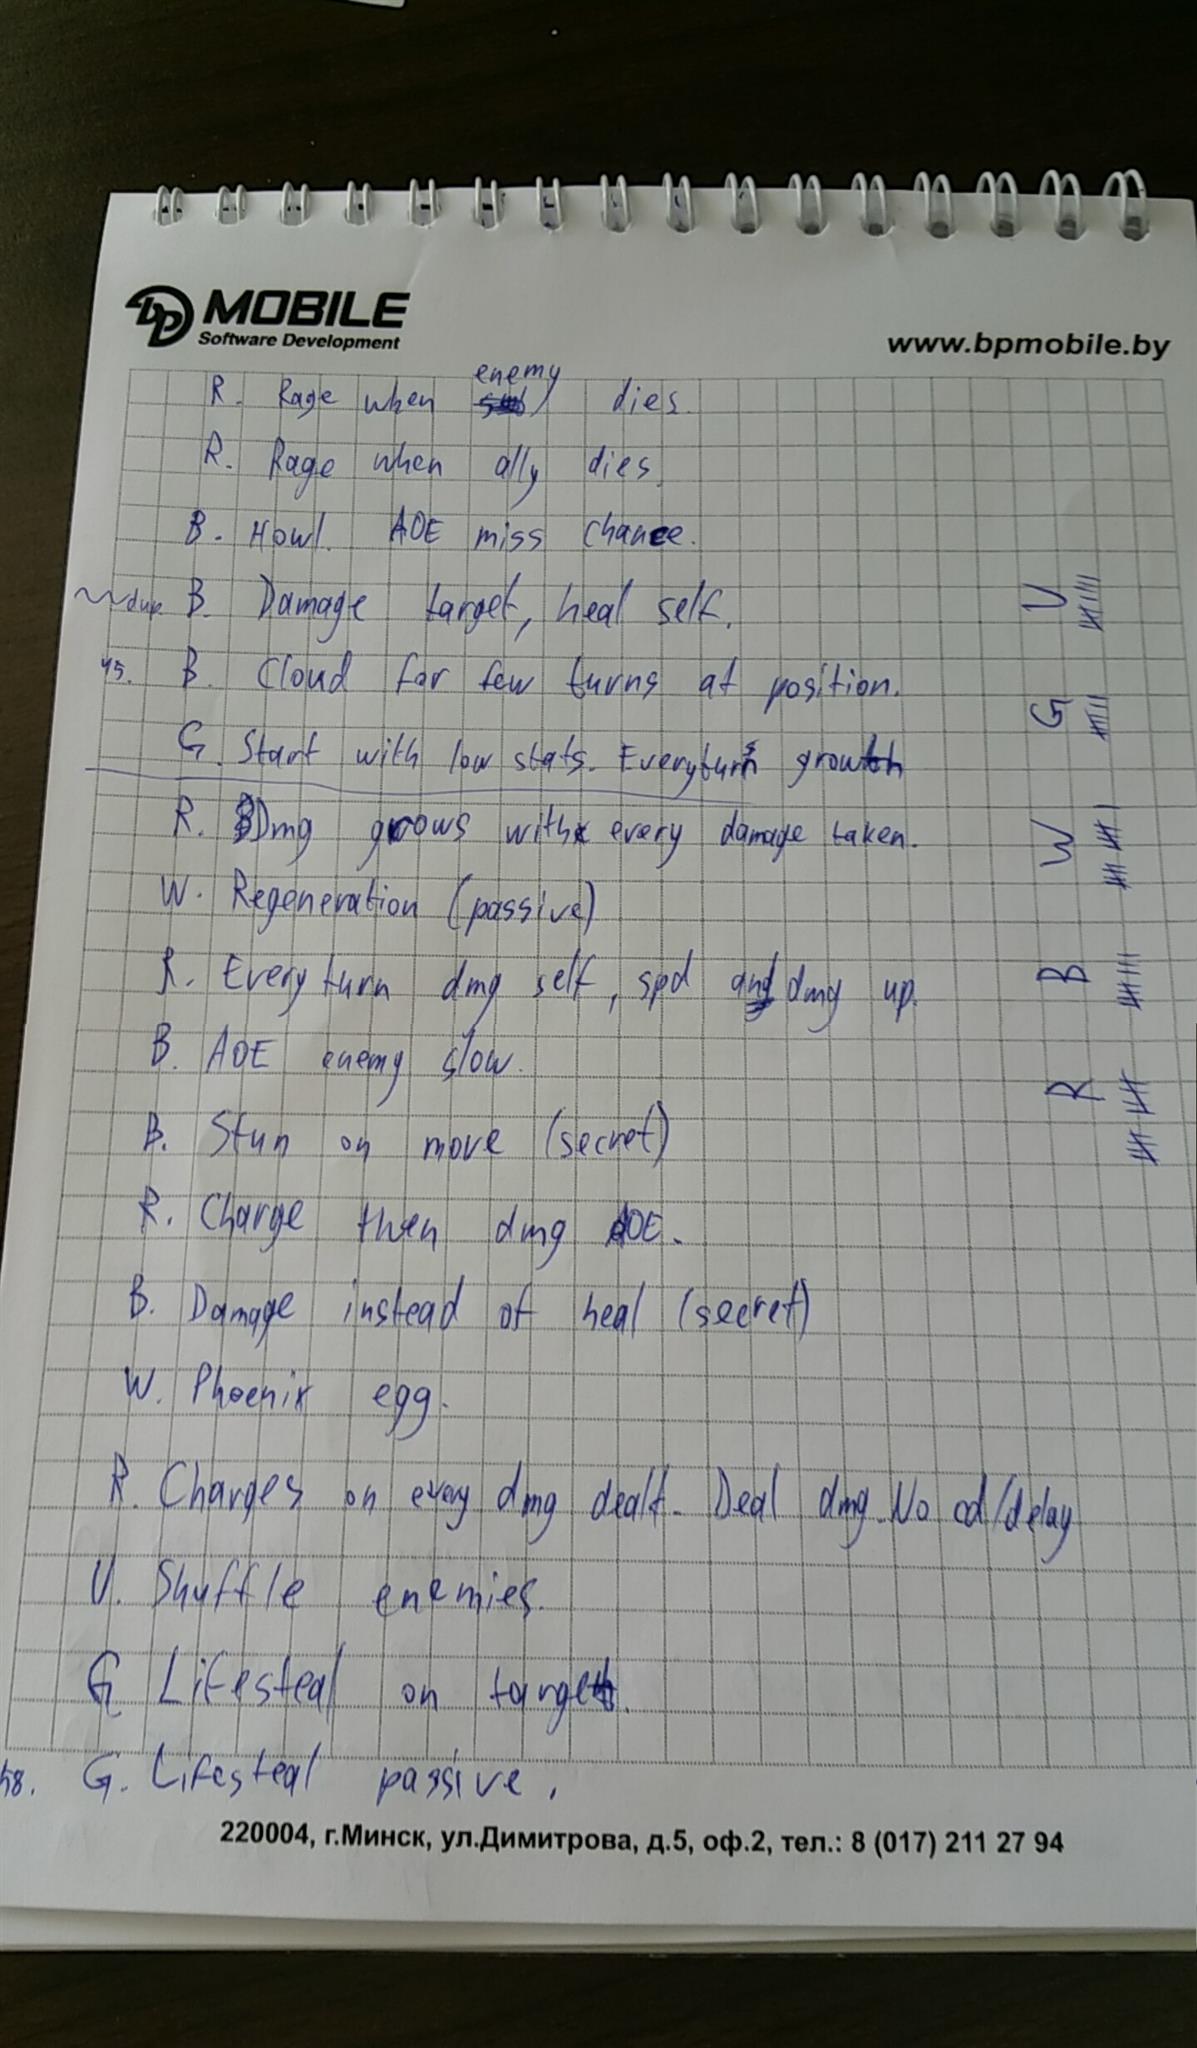 MOBILE
Software Development
www.bpmobile.by
R. Rage when enemy dies.
R. Rage when ally dies.
B. Howl. AOE miss chance.
dup. B. Damage target, heal self.
45. B. Cloud for few turns at position.
G. Start with low stats. Every turn growth
R. Dmg grows with every damage taken.
W. Regeneration (passive)
R. Every turn dmg self, spd and dmg up.
B. AOE enemy slow.
B. Stun on move (secret)
R. Charge then dmg AOE.
B. Damage instead of heal (secret)
W. Phoenix egg.
R. Charges on every dmg dealt. Deal dmg. No cd/delay
U. Shuffle enemies.
G Lifesteal on target.
58. G. Lifesteal passive.
U
G
W
B
R
220004, г.Минск, ул.Димитрова, д.5, оф.2, тел.: 8 (017) 211 27 94